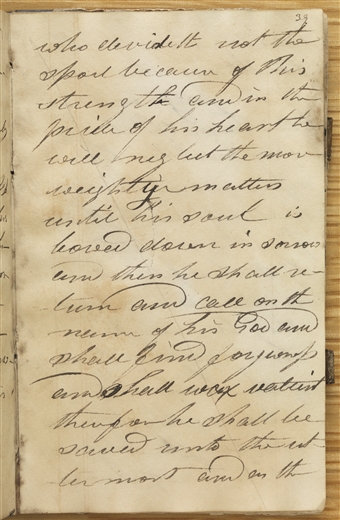 39
who devideth not the
spoil because of his
strength and in the
pride of his heart he
will neglect the more
weightyer matters
until his soul is
bowed down in sorrow
and then he shall re-
turn and call on the
name of his God and
shall find forgivness
and shall wax valient
therefor he shall be
saved unto the ut-
ter most and as the